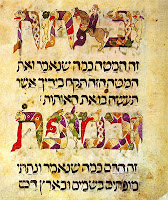 זה המטה כמה שנאמר ואת
המטה הזה תקח בידיך אשר
תעשה בו את האותות
זה הדם כמה שנאמר ונתתי
מופתים בשמים ובארץ דם